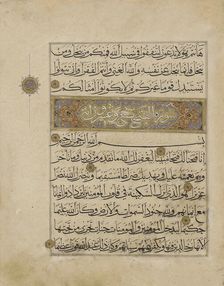 هؤلاء تدعون لتنفقوا في سبيل الله فمنكم من يبخل
ومن يبخل فإنما يبخل عن نفسه والله الغني وأنتم الفقراء وإن تتولوا
يستبدل قوما غيركم ثم لا يكونوا أمثالكم
سورة الفتح وعشرون آية
بسم الله الرحمن الرحيم
إنا فتحنا لك فتحا مبينا ليغفر لك الله ما تقدم من ذنبك وما
تأخر ويتم نعمته عليك ويهديك صراطا مستقيما وينصرك الله نصرا
عزيزا هو الذي أنزل السكينة في قلوب المؤمنين ليزدادوا إيمانا
مع إيمانهم ولله جنود السموات والأرض وكان الله عليما
حكيما ليدخل المؤمنين والمؤمنات جنات تجري من
تحتها الأنهار خالدين فيها ويكفر عنهم